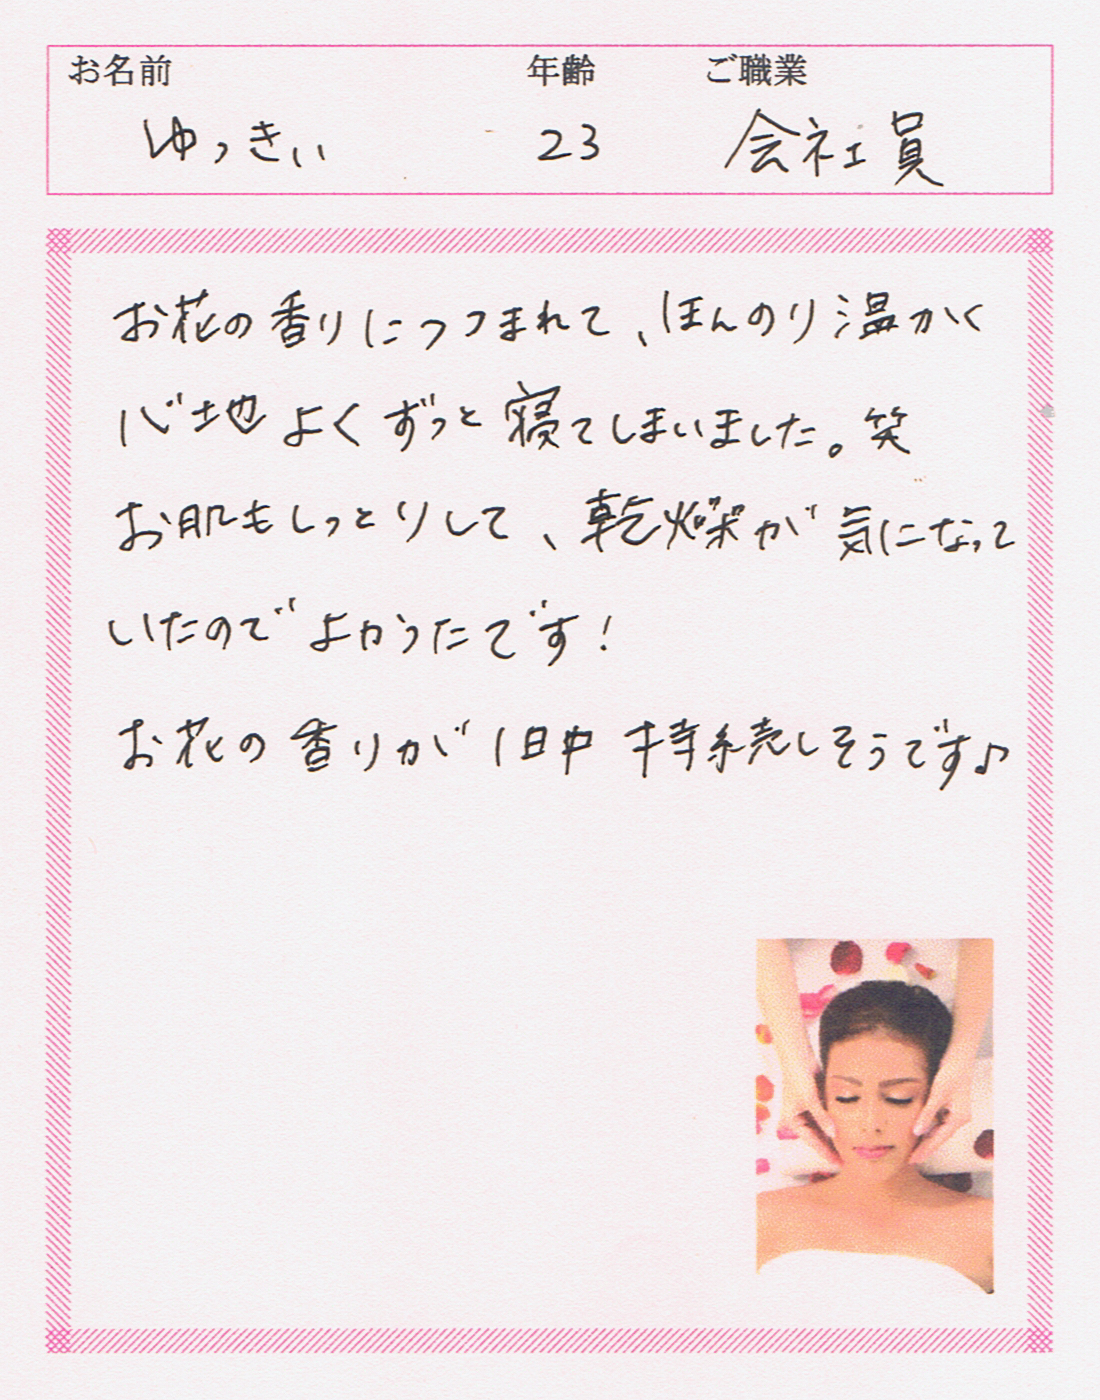 お名前 年齢 ご職業
ゆっきぃ 23 会社員
お花の香りにつつまれて、ほんのり温かく
心地よくずっと寝てしまいました。笑
お肌もしっとりして、乾燥が気になって
いたのでよかったです!
お花の香りが1日中持続しそうです♪